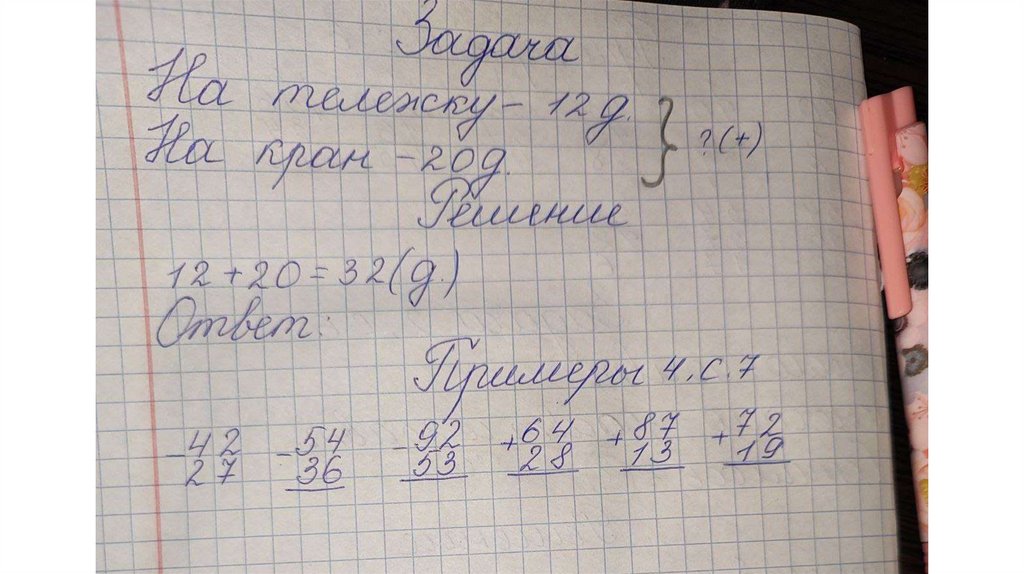 Задача
На тележку - 12 д. } ? (+)
На кран - 20 д.
Решение
12 + 20 = 32 (д.)
Ответ:
Примеры 4. с. 7
- 42 - 54 - 92 + 64 + 87 + 72
27 36 53 28 13 19